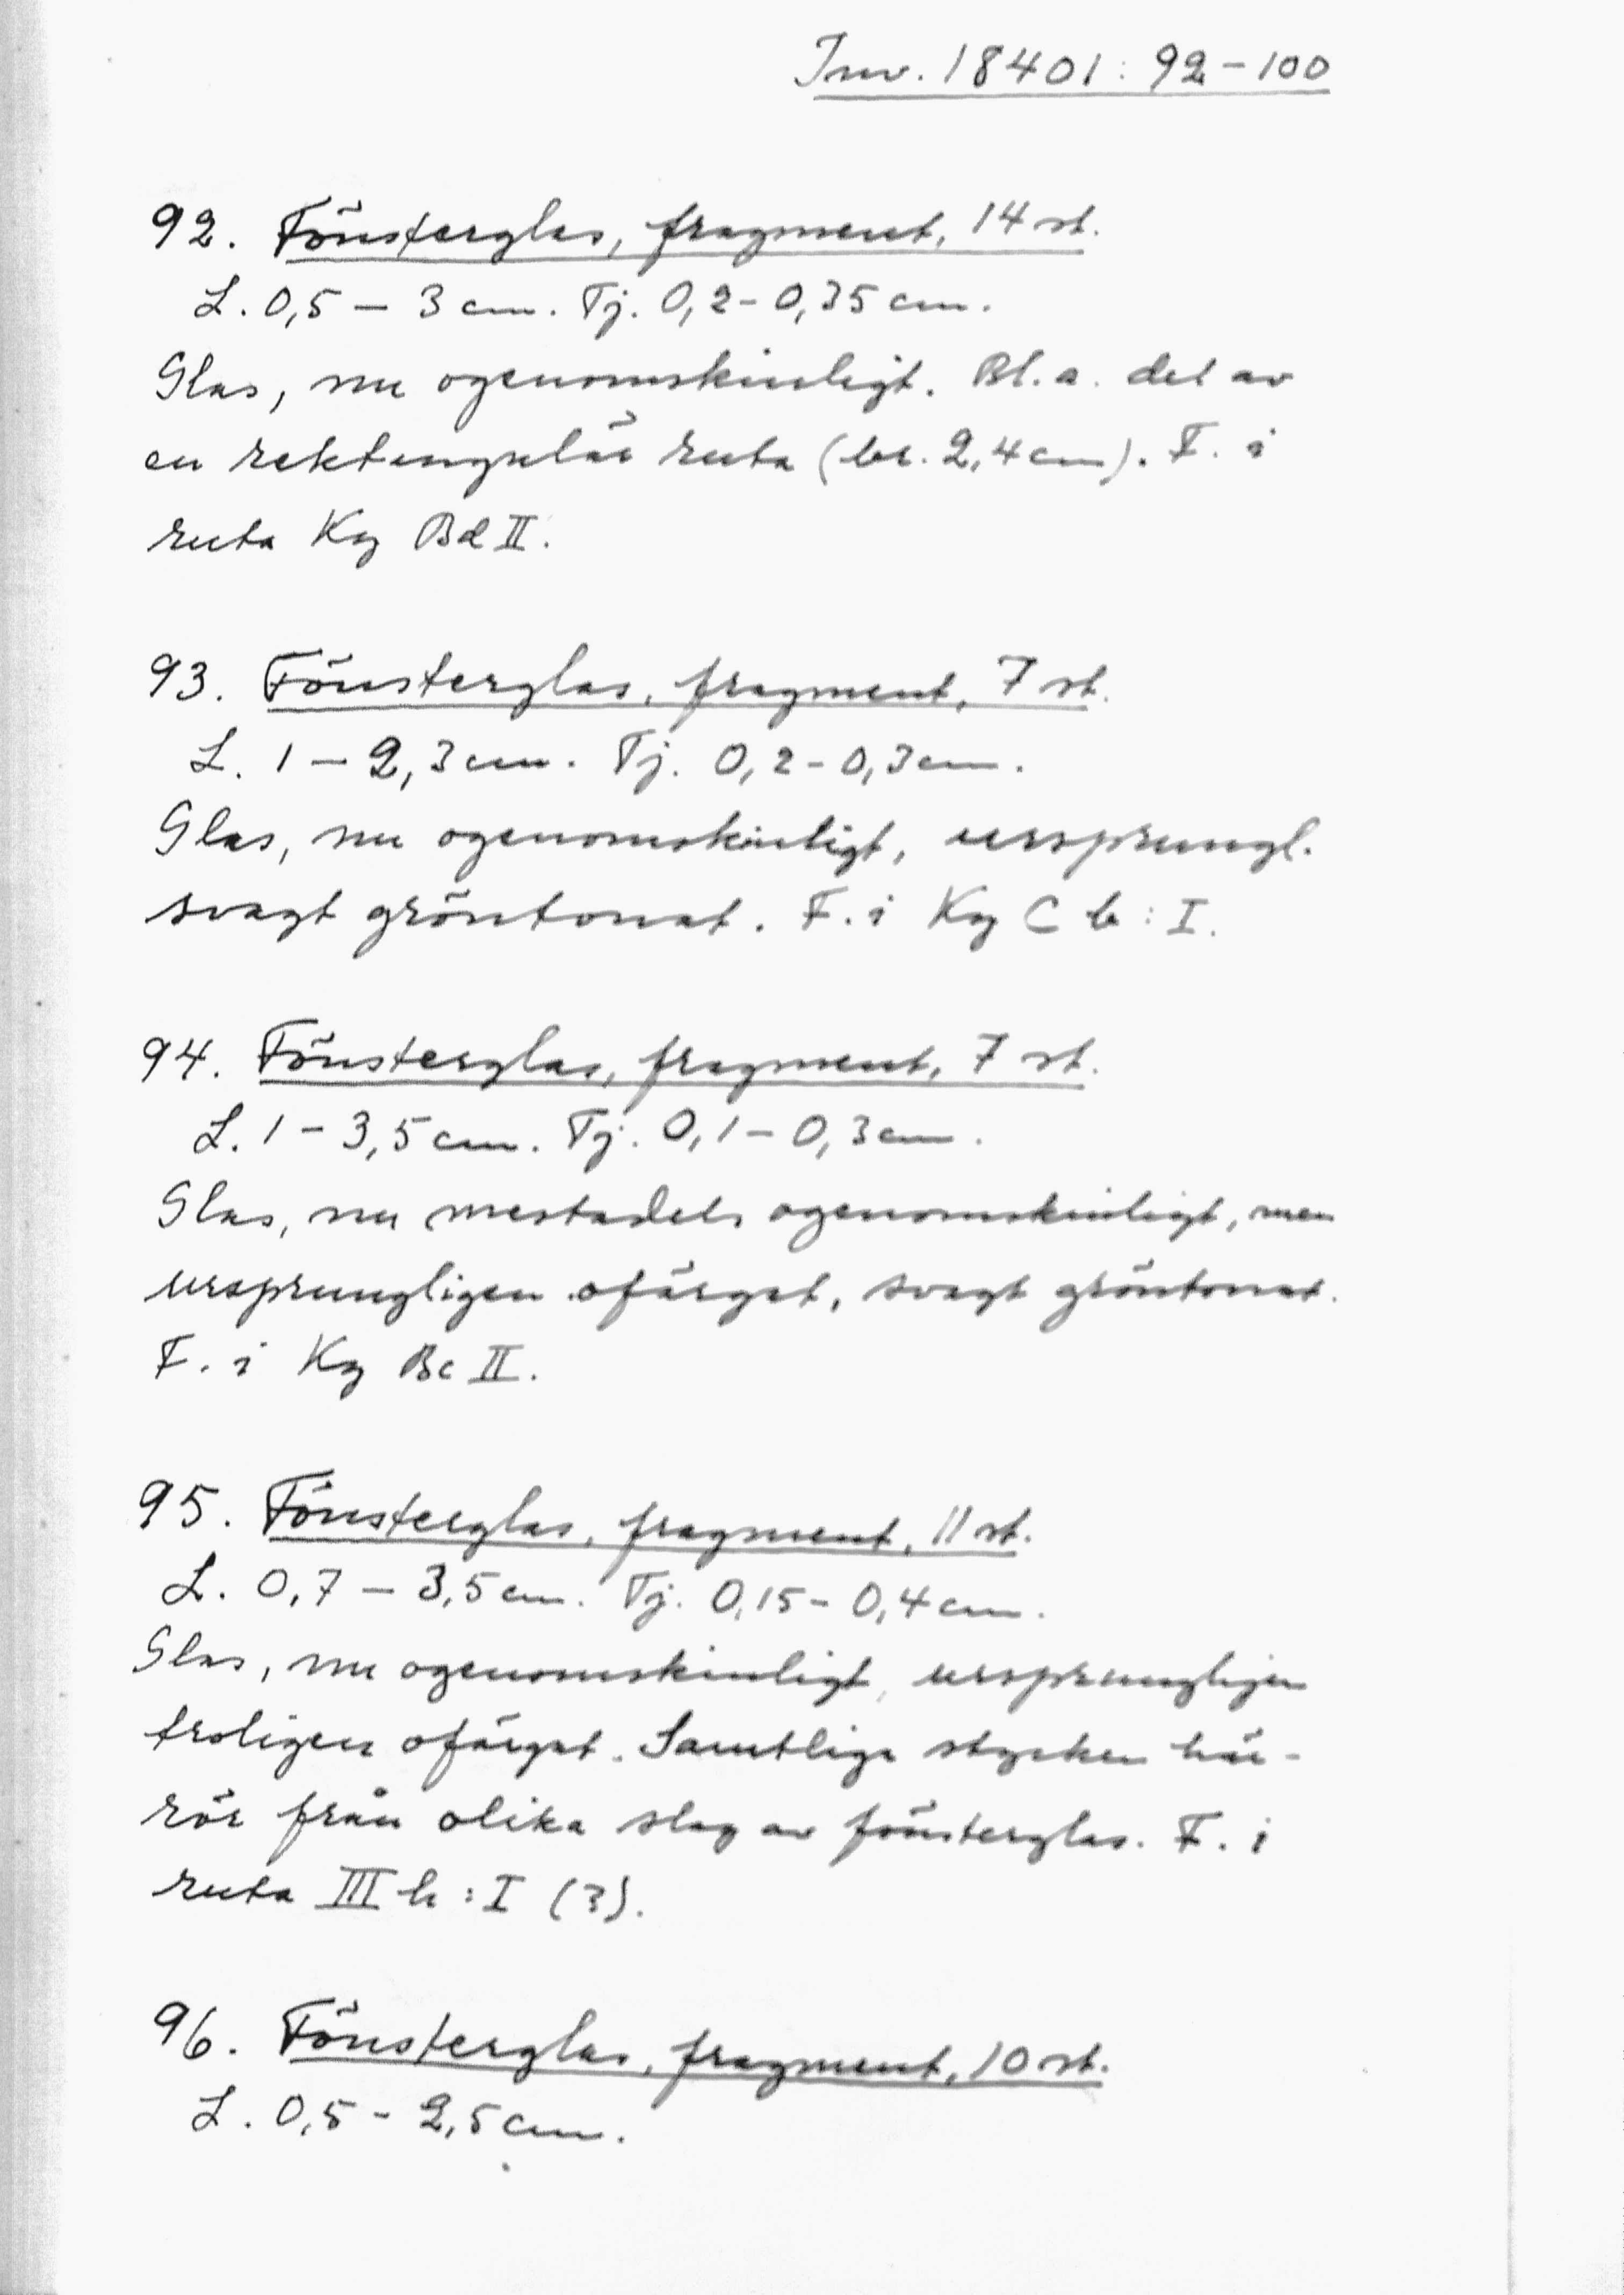 Inv. 18401: 92-100
92. Fönsterglas, fragment, 14 st.
L. 0,5 - 3 cm. Tj. 0,2-0,35 cm.
Glas, nu ogenomskinligt. Bl.a. del av
en rektangulär ruta (br. 2,4 cm). F. i
ruta Kg Bd II.
93. Fönsterglas, fragment, 7 st.
L. 1 - 2,3 cm. Tj. 0,2-0,3 cm.
Glas, nu ogenomskinligt, ursprungl.
svagt gröntonat. F. i Kg C b : I.
94. Fönsterglas, fragment, 7 st.
L. 1 - 3,5 cm. Tj. 0,1-0,3 cm.
Glas, nu mestadels ogenomskinligt, men
ursprungligen ofärgat, svagt gröntonat.
F. i Kg Bc II.
95. Fönsterglas, fragment, 11 st.
L. 0,7 - 3,5 cm. Tj. 0,15-0,4 cm.
Glas, nu ogenomskinligt, ursprungligen
troligen ofärgat. Samtliga stycken här-
rör från olika slag av fönsterglas. F. i
ruta III h : I (3).
96. Fönsterglas, fragment, 10 st.
L. 0,5 - 2,5 cm.